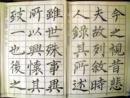 今之視昔悲
夫故列敘時
人錄其所述
雖世殊事異
所以興懷其
致一也後之